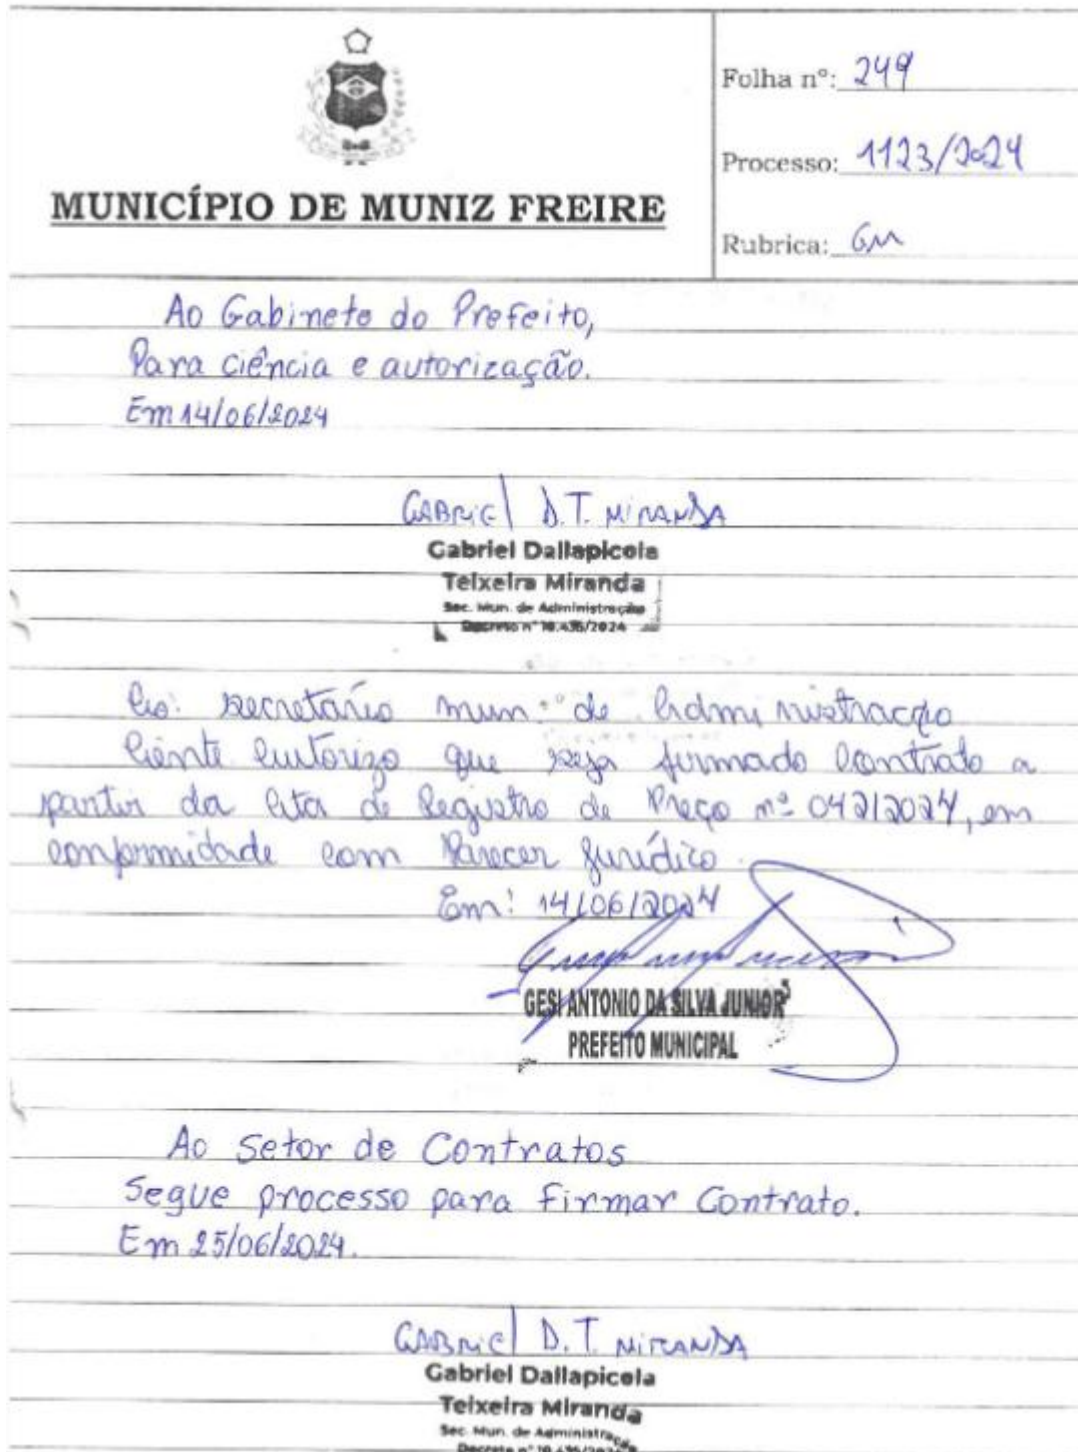 Folha nº: 249
Processo: 1123/2024
MUNICÍPIO DE MUNIZ FREIRE
Rubrica: GM
Ao Gabinete do Prefeito,
Para ciência e autorização.
Em 14/06/2024
GABRIEL D.T. MIRANDA
Gabriel Dallapicola
Teixeira Miranda
Sec. Mun. de Administração
Decreto nº 10.436/2024
Ao: secretário mun. de Administração
Ciente Autorizo que seja firmado Contrato a
partir da Ata de Registro de Preço nº 042/2024, em
conformidade com Parecer Jurídico.
Em: 14/06/2024
GESI ANTONIO DA SILVA JUNIOR
PREFEITO MUNICIPAL
Ao Setor de Contratos
Segue processo para firmar Contrato.
Em 25/06/2024.
GABRIEL D.T. MIRANDA
Gabriel Dallapicola
Teixeira Miranda
Sec. Mun. de Administração
Decreto nº 10.436/2024